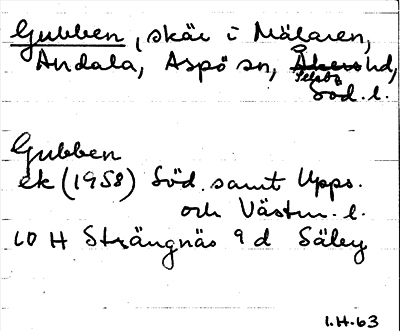 Gubben, skär i Mälaren,
Andala, Aspö sn, Åkers hd,
Selebo
Söd. l.
Gubben
ek (1958) Söd. samt Upps.
och Västm. l.
10 H Strängnäs 9 d Säley
I.H.63